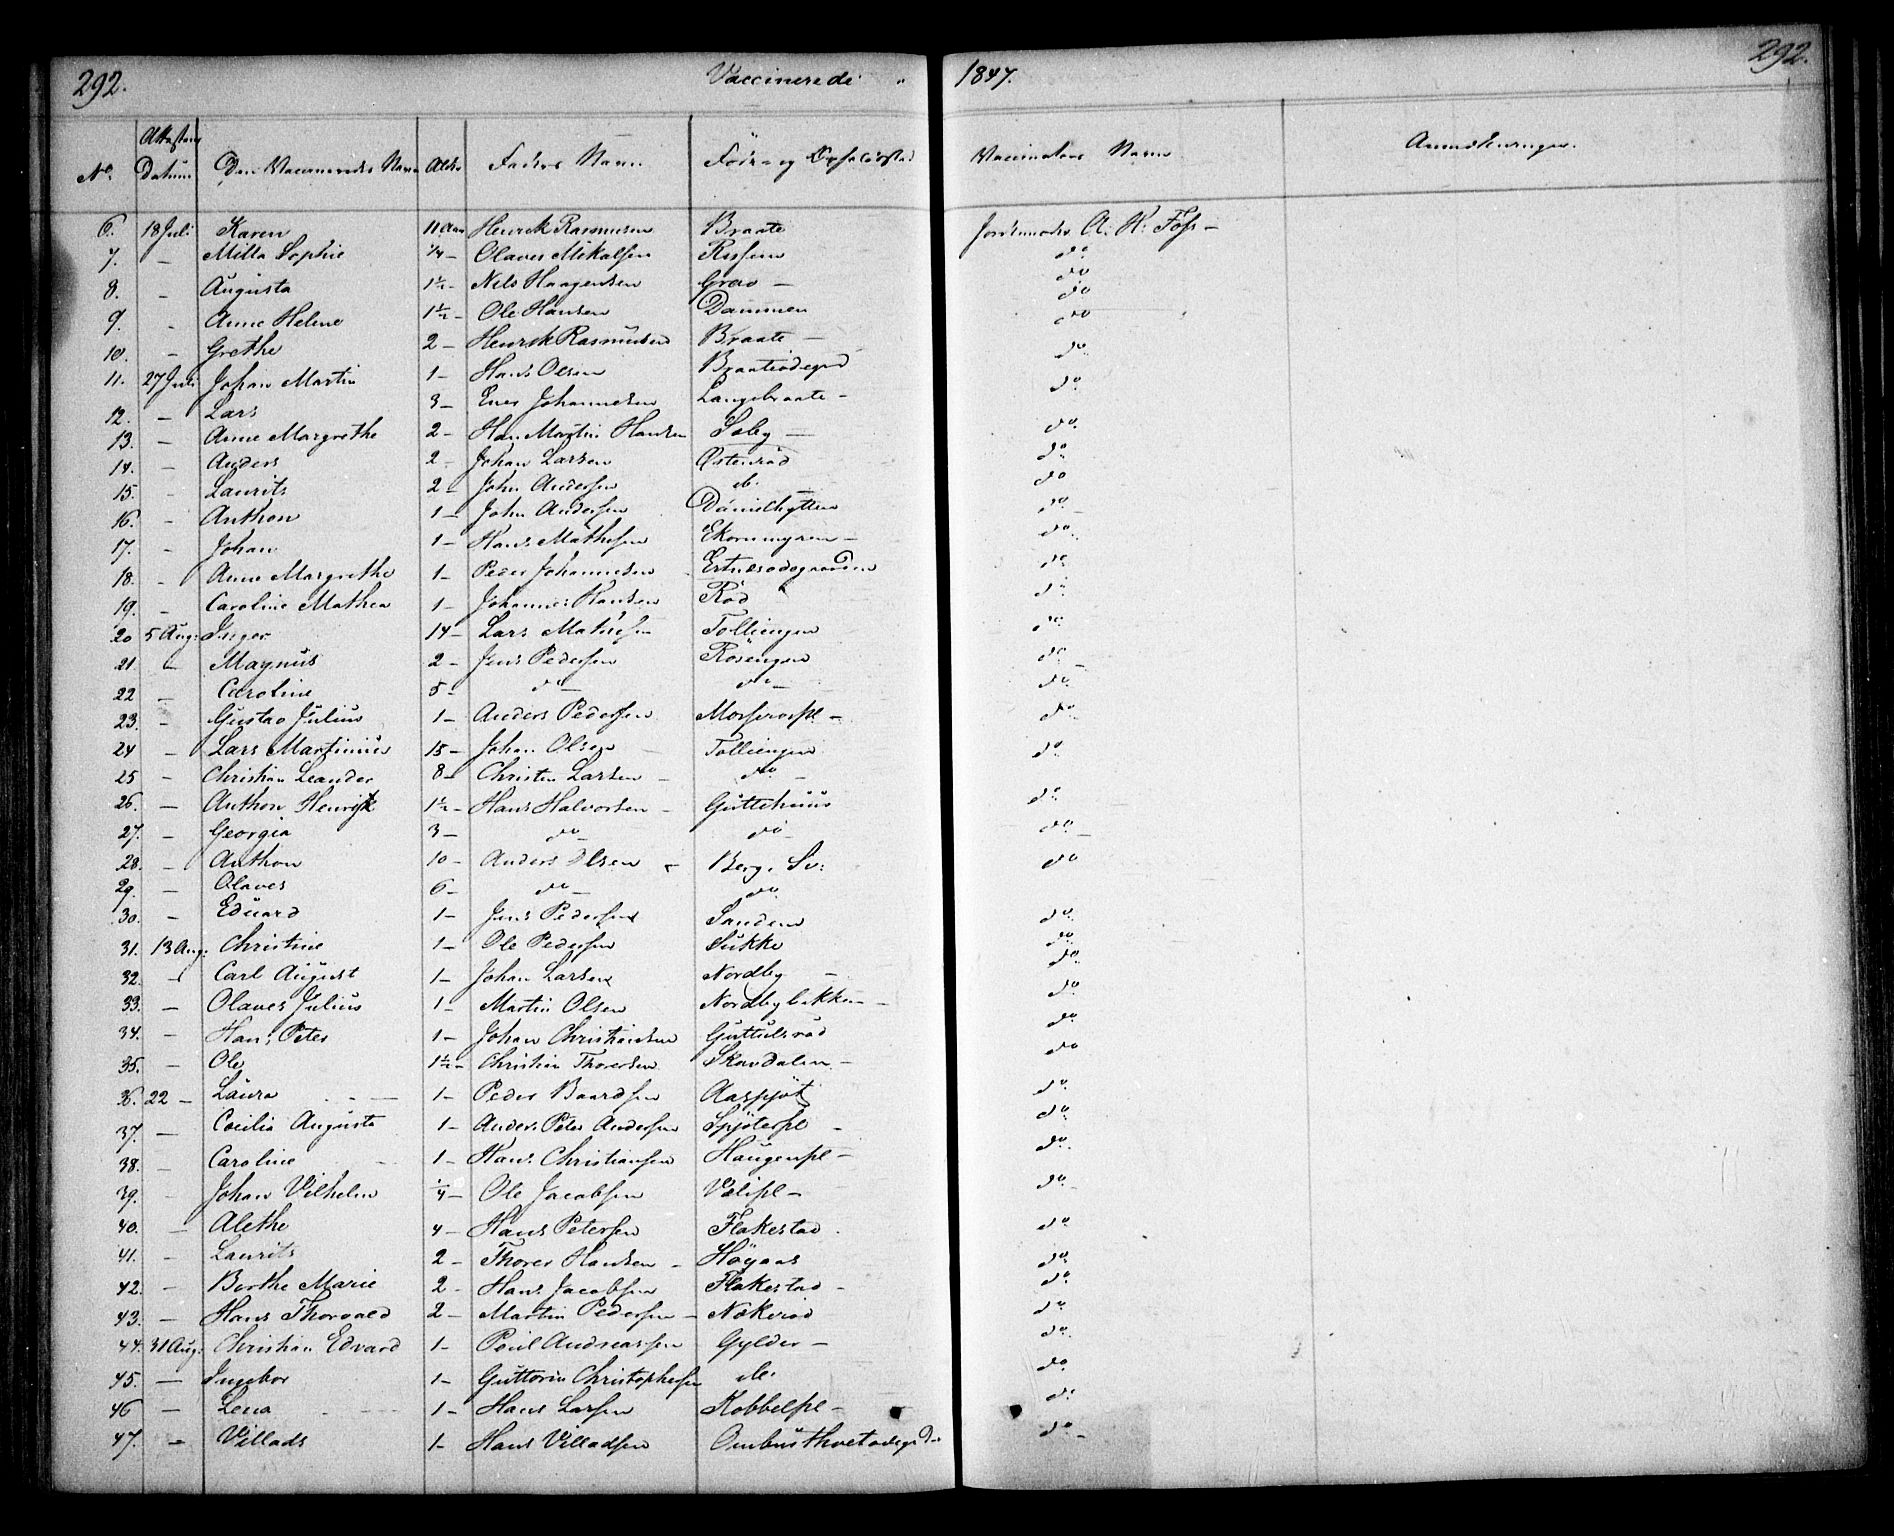 292. Vaccinerede 1847. 292.
No. Attestens Datum Den Vaccineredes Navn Alder Faders Navn Føde- og Opholdssted Vaccinators Navn Anmærkninger.
6. 18 Juli Karen 11 Aar Henrik Rasmusen Braate Jordemoder A: K: Foss -
7. — Milla Sophie 1/4 - Olaves Mikalsen do
8. - Augusta 1½ - Nils Haagensen Grav — do
9. - Anne Helene 1½ - Ole Hansen Dammen do
10. - Grethe 2 - Henrik Rasmusen Braate — do
11. 27 Juli Johan Martin 1 - Hans Olsen do
12. — Lars 3 - Johannesen Langebraate - do
13. — Anne Margrethe 2 - Hans Martin Hansen Soley — do
14. — Anders 2 - Johan Larsen Østenrød do
15. - Laurits 2 - John Andersen do. do
16. - Anthon 1 - John Andersen Danielhytten do
17. - Johan 1 - Hans Mathesen Ekornmyren - do
18. - Anne Margrethe 1 - Peder Johannesen do
19. - Caroline Mathea 1 - Johannes Hansen Rød do
20 5 Aug: Inger 14 - Lars Mathisen Tolliengen do
21 — Magnus 2 - Jens Pedersen Røsengen do
22 — Caroline 5 - do — do — do
23. - Gustav Julius 1 - Anders Pedersen do
24 - Lars Martinius 15 - Johan Olsen Tolliengen do
25 - Christian Leander 8 - Christen Larsen - do -
26. — Anthon Henrik 1½ - Hans Halvorsen - Guttehuus do
27. - Georgia 3 - do — do - do
28. - Anthon 10 - Anders Olsen - Berg, Sv: do
29. — Olaves 6 - do — do
30. - Eduard 1 - Jens Pedersen Sanden do
31. 13 Aug: Christine 1 - Ole Pedersen Sukke do
32. - Carl August 1 - Johan Larsen Nordby — do
33. — Olaves Julius 1 - Martin Olsen Nordbybakken - do
34. - Hans Peter 1 - Johan Christiansen Guttulsrød do
35. - Ole 1½ - Christian Thoresen Skovdalen - do
36. 22 - Laura 1 - Peder Baardsen Aaspjøt do
37. — Cecilia Augusta 1 - Anders Peter Andersen Spjøterpl - do
38. — Caroline 1 - Hans Christiansen Haugenpl - do
39. - Johan Vilhelm ¼ - Ole Jacobsen do
40. - Alethe 4 - Hans Petersen Flakestad do
41. - Laurits 2 - Thorer Hansen - Høgaas do
42. — Berthe Marie 2 - Hans Jacobsen Flakestad - do
43. — Hans Thorvald 2 - Martin Pedersen - Nøkerød do
44. 31 Aug: Christian Edvard 1 - Poul Andreassen Gylder - do
45. — Ingebor 1 - Guttorm Christophersen do. do
46 — Lena 1 - Hans Larsen Kobbelpl - do
47. - Villads 1 - Hans Villadsen do -